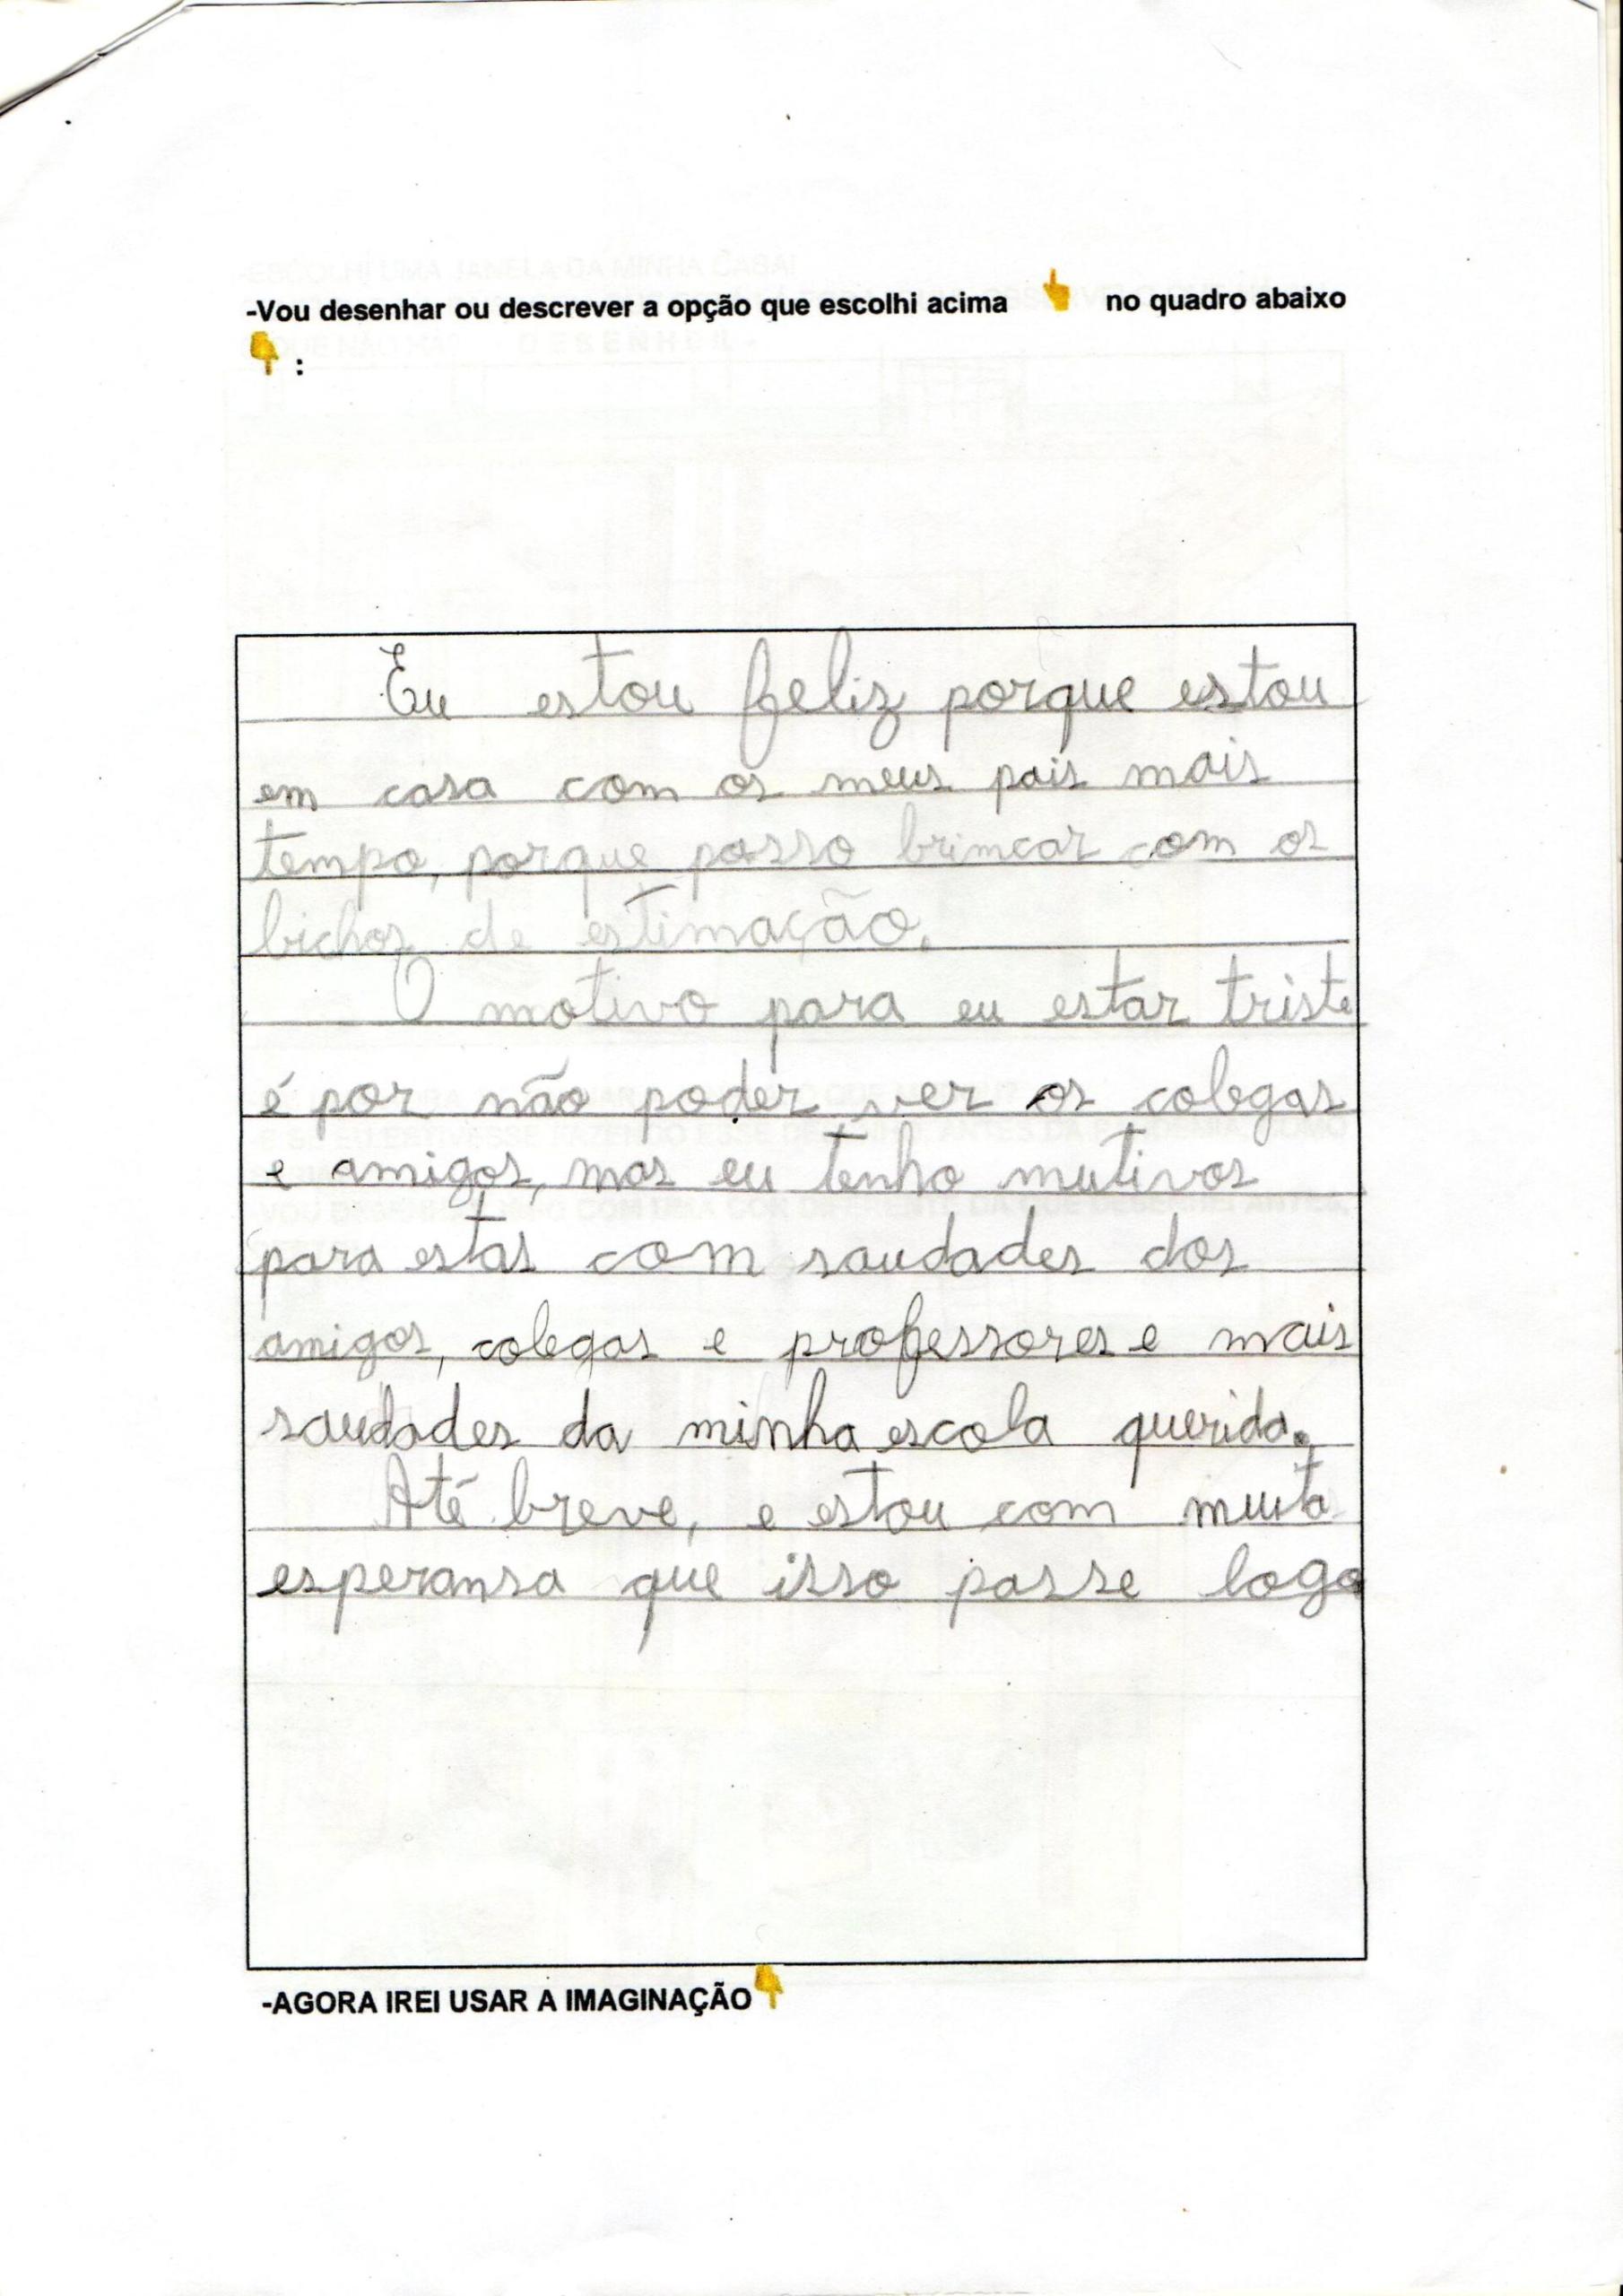 -Vou desenhar ou descrever a opção que escolhi acima 👆 no quadro abaixo
👇 :
Eu estou feliz porque estou
em casa com os meus pais mais
tempo, porque posso brincar com os
bichos de estimação.
O motivo para eu estar triste
é por não poder ver os colegas
e amigos, mas eu tenho mutivos
para estas com saudades dos
amigos, colegas e professores e mais
saudades da minha escola querida.
Até breve, e estou com muita
esperansa que isso passe logo
-AGORA IREI USAR A IMAGINAÇÃO👇